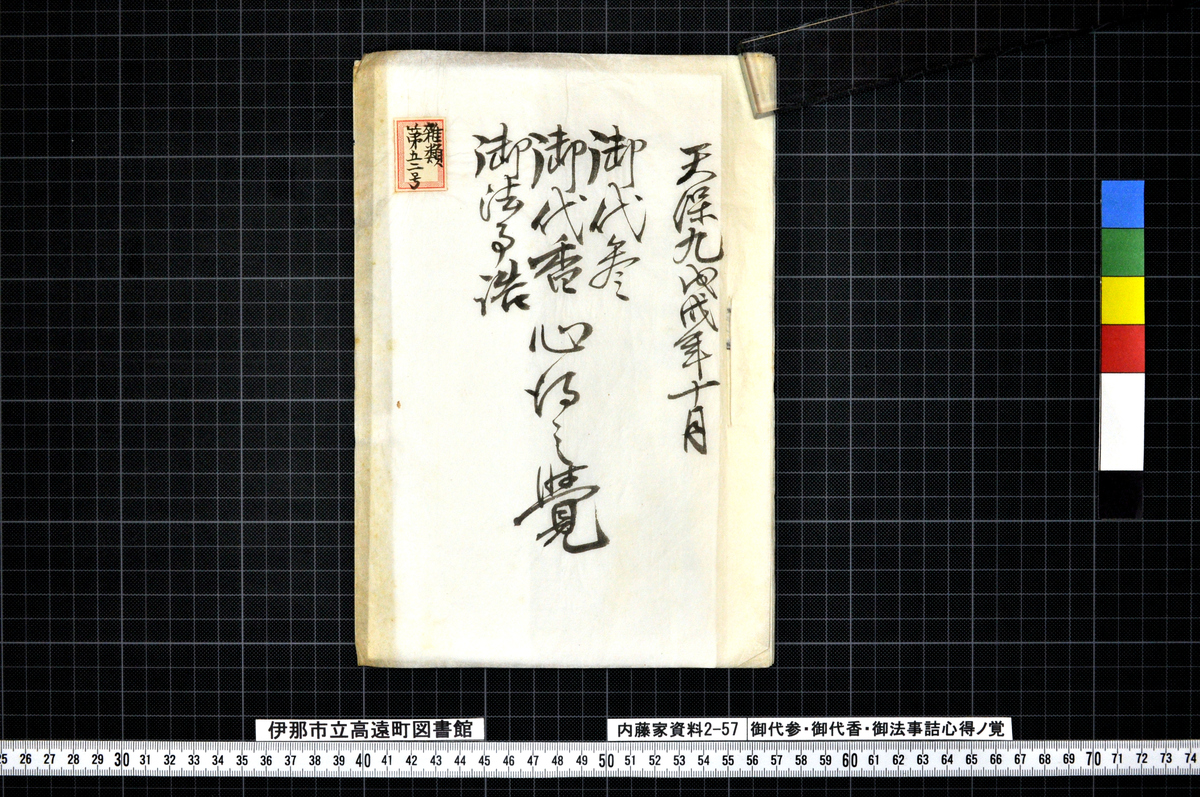 天保九戊戌年十月
御代参
御代香
御法事詰
心得之覺
雑類
第五二号
伊那市立高遠町図書館
内藤家資料2-57
御代参・御代香・御法事詰心得ノ覚
25 26 27 28 29 30 31 32 33 34 35 36 37 38 39 40 41 42 43 44 45 46 47 48 49 50 51 52 53 54 55 56 57 58 59 60 61 62 63 64 65 66 67 68 69 70 71 72 73 74